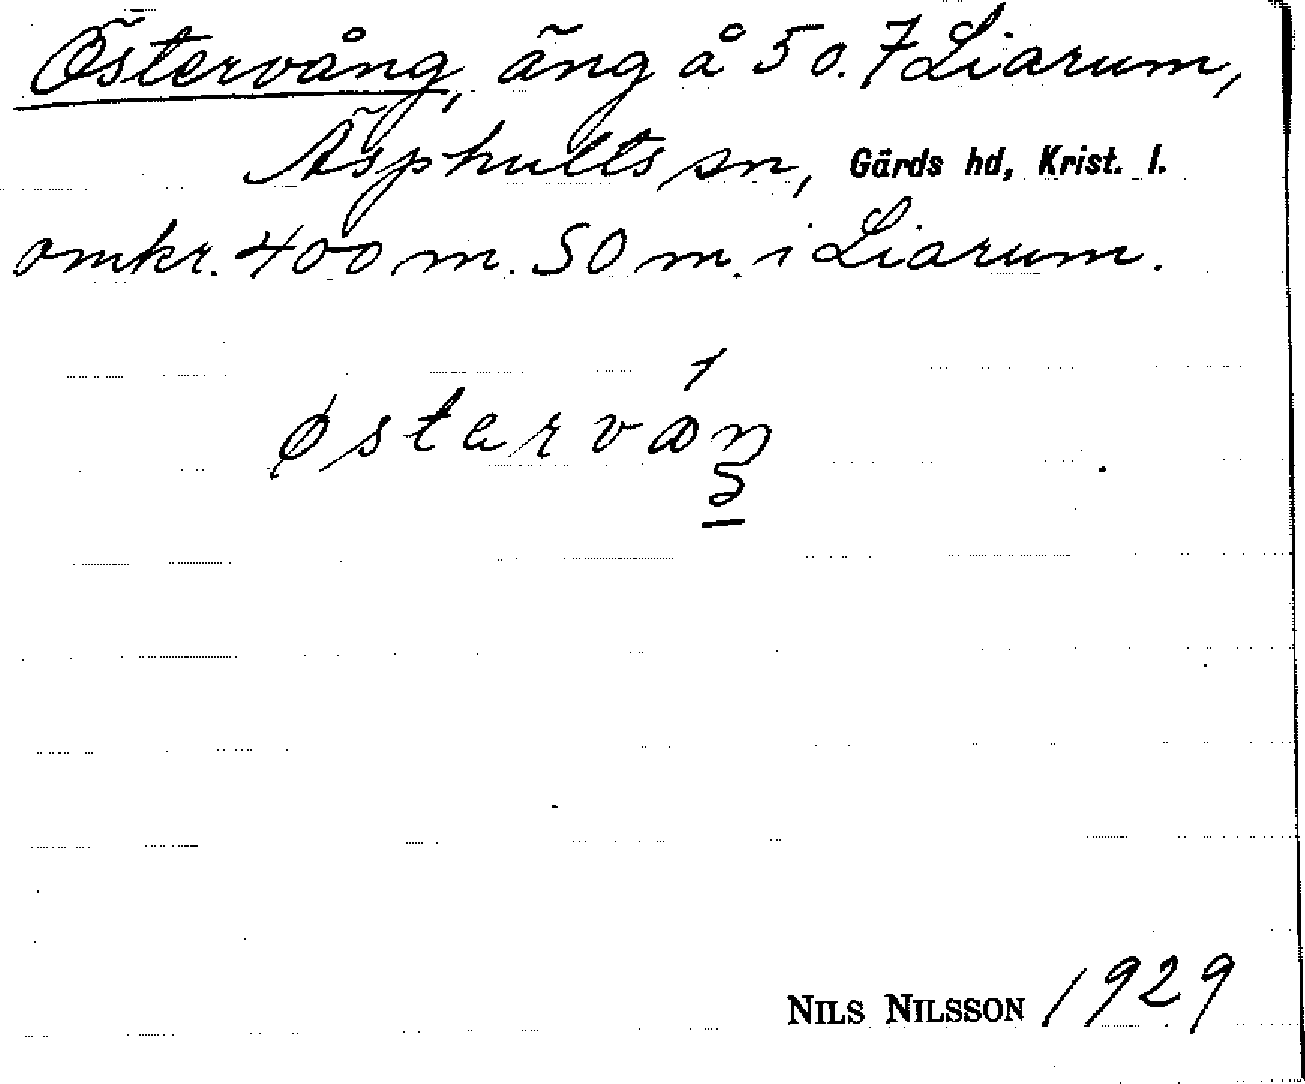 Östervång, äng å 5 o. 7 Liarum,
Äsphults sn, Gärds hd, Krist. l.
omkr. 400 m. SO m. i Liarum.
østarvá̊ŋ
NILS NILSSON 1929